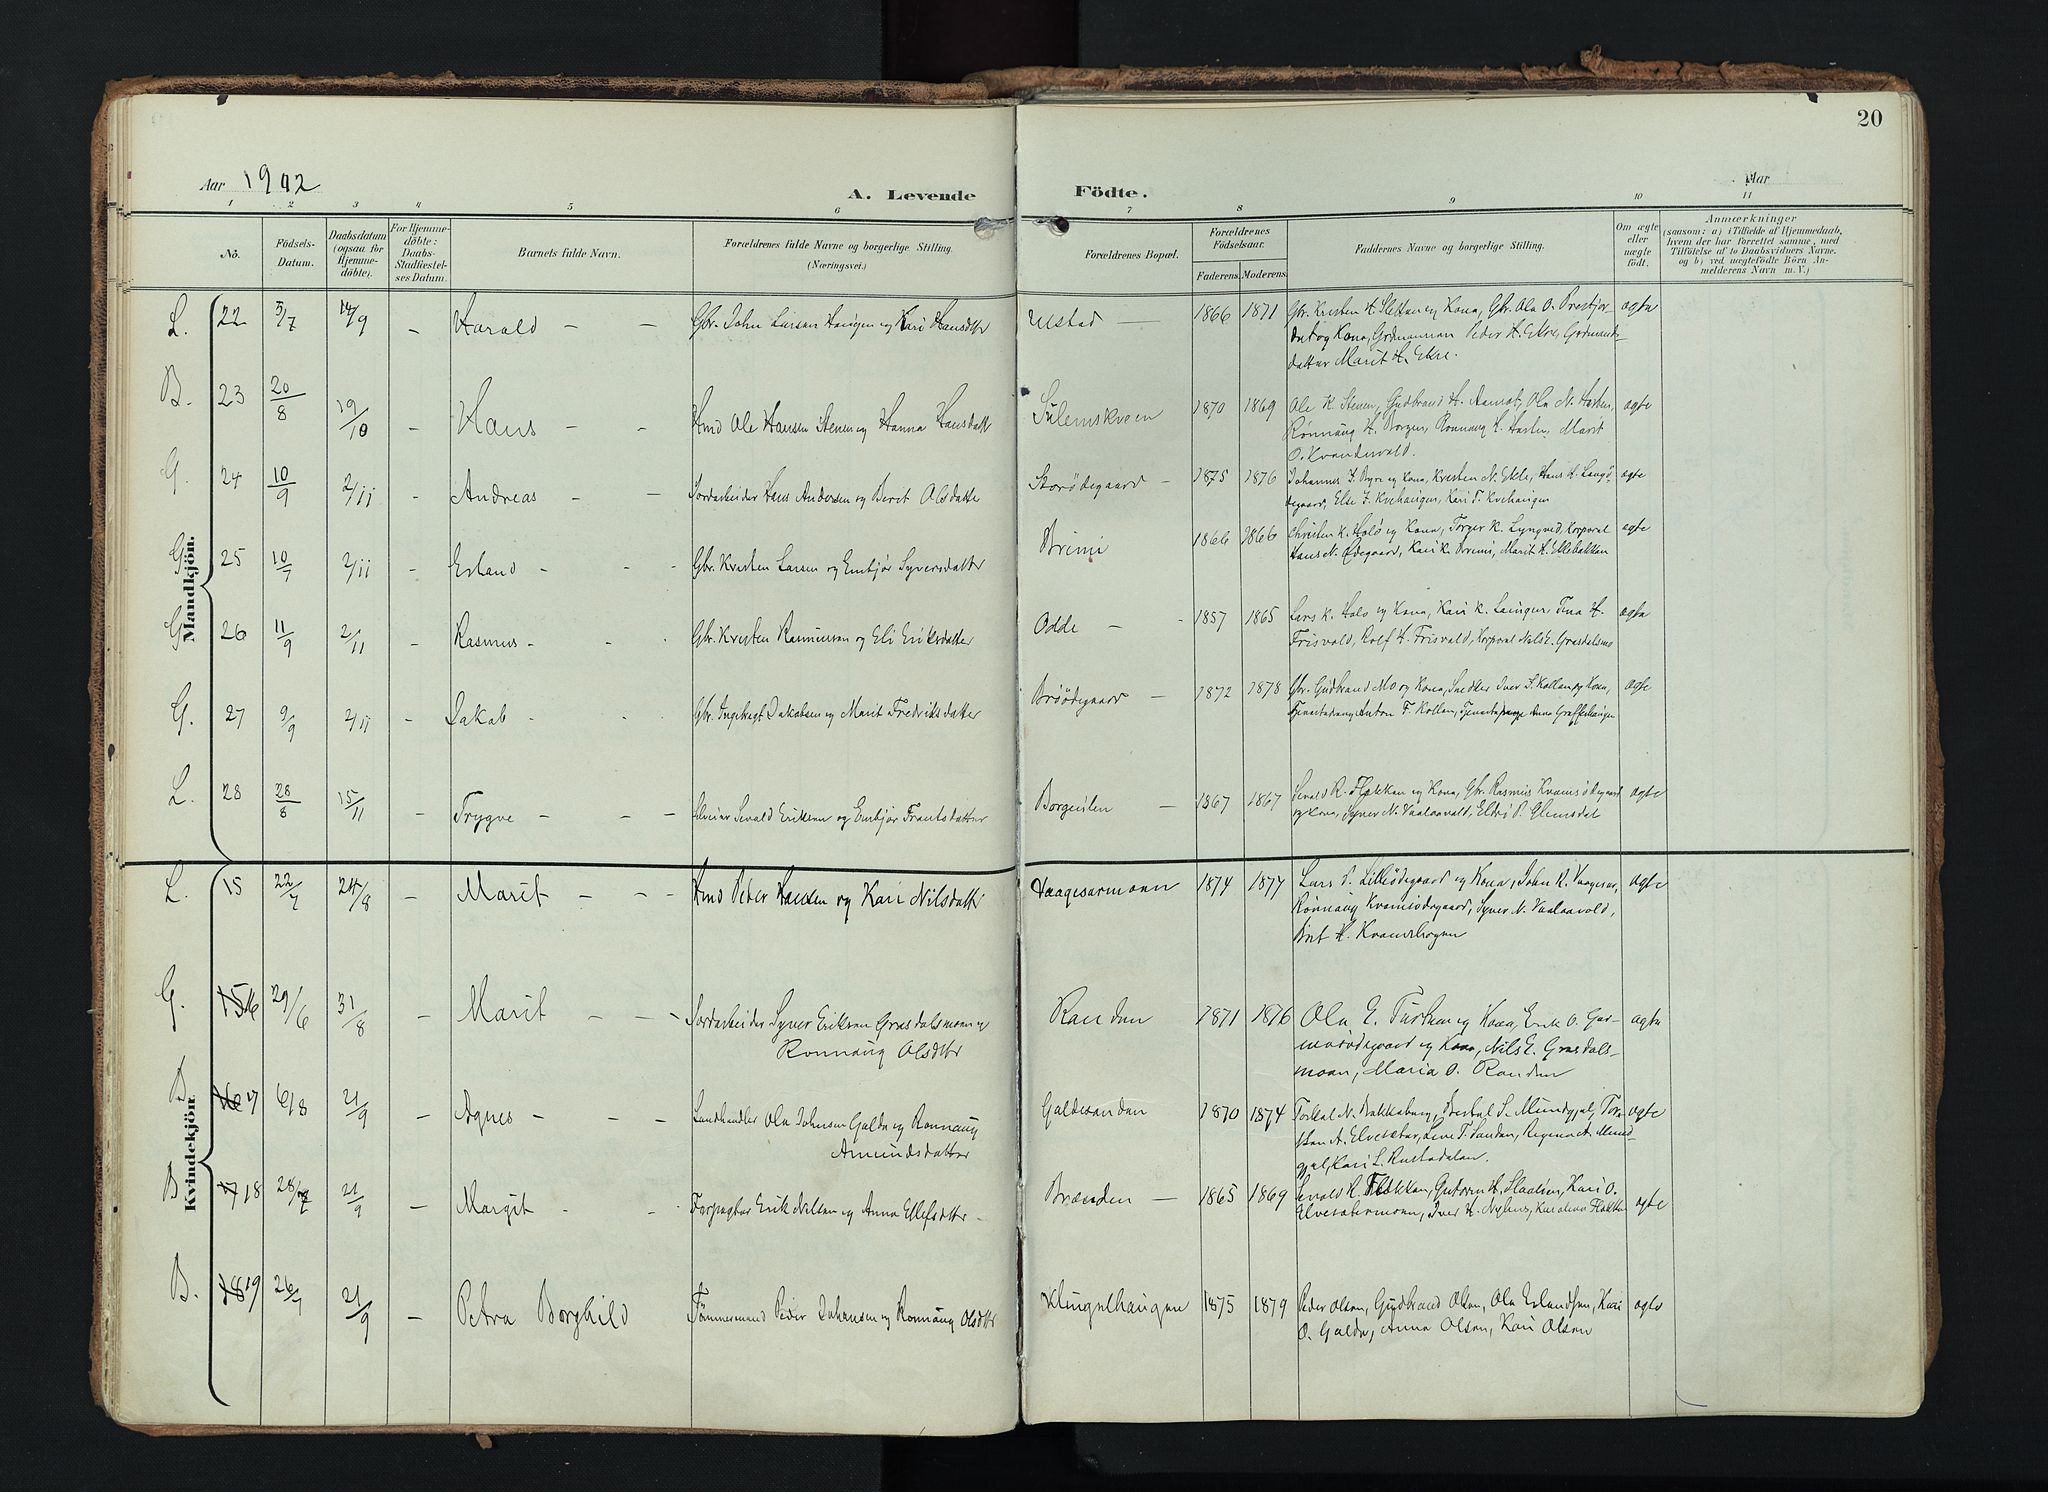 20
Aar 1902
A. Levende
Födte.
Aar
1 2 3 4 5 6 7 8 9 10 11
No.
Födsels-
Datum.
Daabsdatum
(ogsaa for
Hjemme-
döbte).
For Hjemme-
döbte:
Daabs-
Stadfæstel-
ses Datum.
Barnets fulde Navn.
Forældrenes fulde Navne og borgerlige Stilling.
(Næringsvei.)
Forældrenes Bopæl.
Forældrenes
Födselsaar.
Faderens.
Moderens.
Faddernes Navne og borgerlige Stilling.
Om ægte
eller
uægte
födt.
Anmærkninger
(saasom: a) i Tilfælde af Hjemmedaab,
hvem der har forrettet samme, med
Tilföielse af to Daabsvidners Navne.
og b) ved uægtefödte Börn An-
melderens Navn m. V.)
Mandkjön.
L. 22 5/7 14/9 - Harald - - Gbr. John Larsen Haugen og Kari Hansdtr Ulstad - 1866 1871 Gbr. Kristen H. Sletten og Kona, Gbr. Ola O. Prestjor-
det og Kona, Grdmannsøn Peder H. Ekre, Grdmands-
datter Marit H. Ekre. ægte
B. 23 20/8 19/10 - Hans - - Hmd Ole Hansen Stenen og Hanna Hansdatter Sulemskveen 1870 1869 Ole K. Stenen, Gudbrand H. Aamot, Ola N. Harten,
Rønnaug H. Borgen, Rønnaug H. Harten, Marit
O. Kvandervold. ægte
G. 24 10/9 2/11 - Andreas - - Jordarbeider Hans Andersen og Berit Olsdatter Storødegaard - 1875 1876 Johannes J. Byre og Kona, Kristen N. Ekle, Hans H. Langø-
degaard, Else J. Kvehaugen, Kari T. Kvehaugen ægte
G. 25 10/7 2/11 - Erland - - Gbr. Kristen Larsen og Embjør Syversdatter Brimi 1866 1866 Christen K. Holø og Kona, Torger K. Lyngved, Korporal
Hans N. Ødegaard, Kari K. Brimi, Marit H. Eklebakken ægte
G. 26 11/9 2/11 - Rasmus - - Gbr. Kristen Rasmussen og Eli Eriksdatter Odde - 1857 1865 Lars K. Holø og Kona, Kari K. Haugen, Tina H.
Frisvold, Rolf H. Frisvold, Korporal Nils E. Grasdalsmo ægte
G. 27 9/9 2/11 - Jakob - - Gbr. Ingebrigt Jakobsen og Marit Fredriksdatter Brødegaard - 1872 1878 Gbr. Gudbrand Mo og Kona, Snedker Iver S. Kollen og Kona,
Tjenestedreng Anton F. Kollen, Tjenestepige Anna Graffihaugen ægte
L. 28 28/8 15/11 - Trygve - - Sevald Eriksen og Embjør Frantsdatter Borgeilien - 1867 1867 Sevald R. Flekken og Kona, Gbr. Rasmus Kramsødegaard
og Kona, Syver N. Vaalaavold, Eldri P. Glemsdal ægte
Kvindekjön.
L. 15 22/7 24/8 - Marit - - Hmd Peder Hansen og Kari Nilsdatter Vaagesarmoen 1874 1877 Lars P. Lilleødegaard og Kona, John K. Vaagesar,
Rønnaug Kramsødegaard, Syver N. Vaalaavold,
Brit H. Kramshogen ægte
G. 16 29/6 31/8 - Marit - - Jordarbeider Syver Eriksen Grasdalsmoen og
Rønnaug Olsdtr Randen 1871 1876 Ola E. Turtum og Kona, Erik O. Gar-
moødegaard og Kona, Nils E. Grasdals-
moen, Maria O. Randen ægte
B 17 6/8 21/9 - Agnes - - Landhandler Ola Johnsen Galde og Rønnaug
Amundsdatter Galdesanden 1870 1874 Torkel N. Bakkeberg, Bertel S. Mundgjel, Tor-
sten A. Elvesæter, Live T. Sanden, Regine A. Mund-
gjel, Kari L. Rustadalen. ægte
B 18 28/7 21/9 - Margit - - Forpagter Erik Nilsen og Anna Ellefsdtr - Brænden - 1865 1869 Sevald R. Flekken, Guttorm H. Slaalien, Kari O.
Elvesætermoen, Iver H. Nyhus, Karoline Flekken ægte
B. 19 26/7 21/9 - Petra Borghild Tømmermand Peder Johansen og Rønnaug Olsdtr Klingelhaugen 1875 1879 Peder Olsen, Gudbrand Olsen, Ola Erlandsen, Kari
O. Galde, Anna Olsen, Kari Olsen ægte